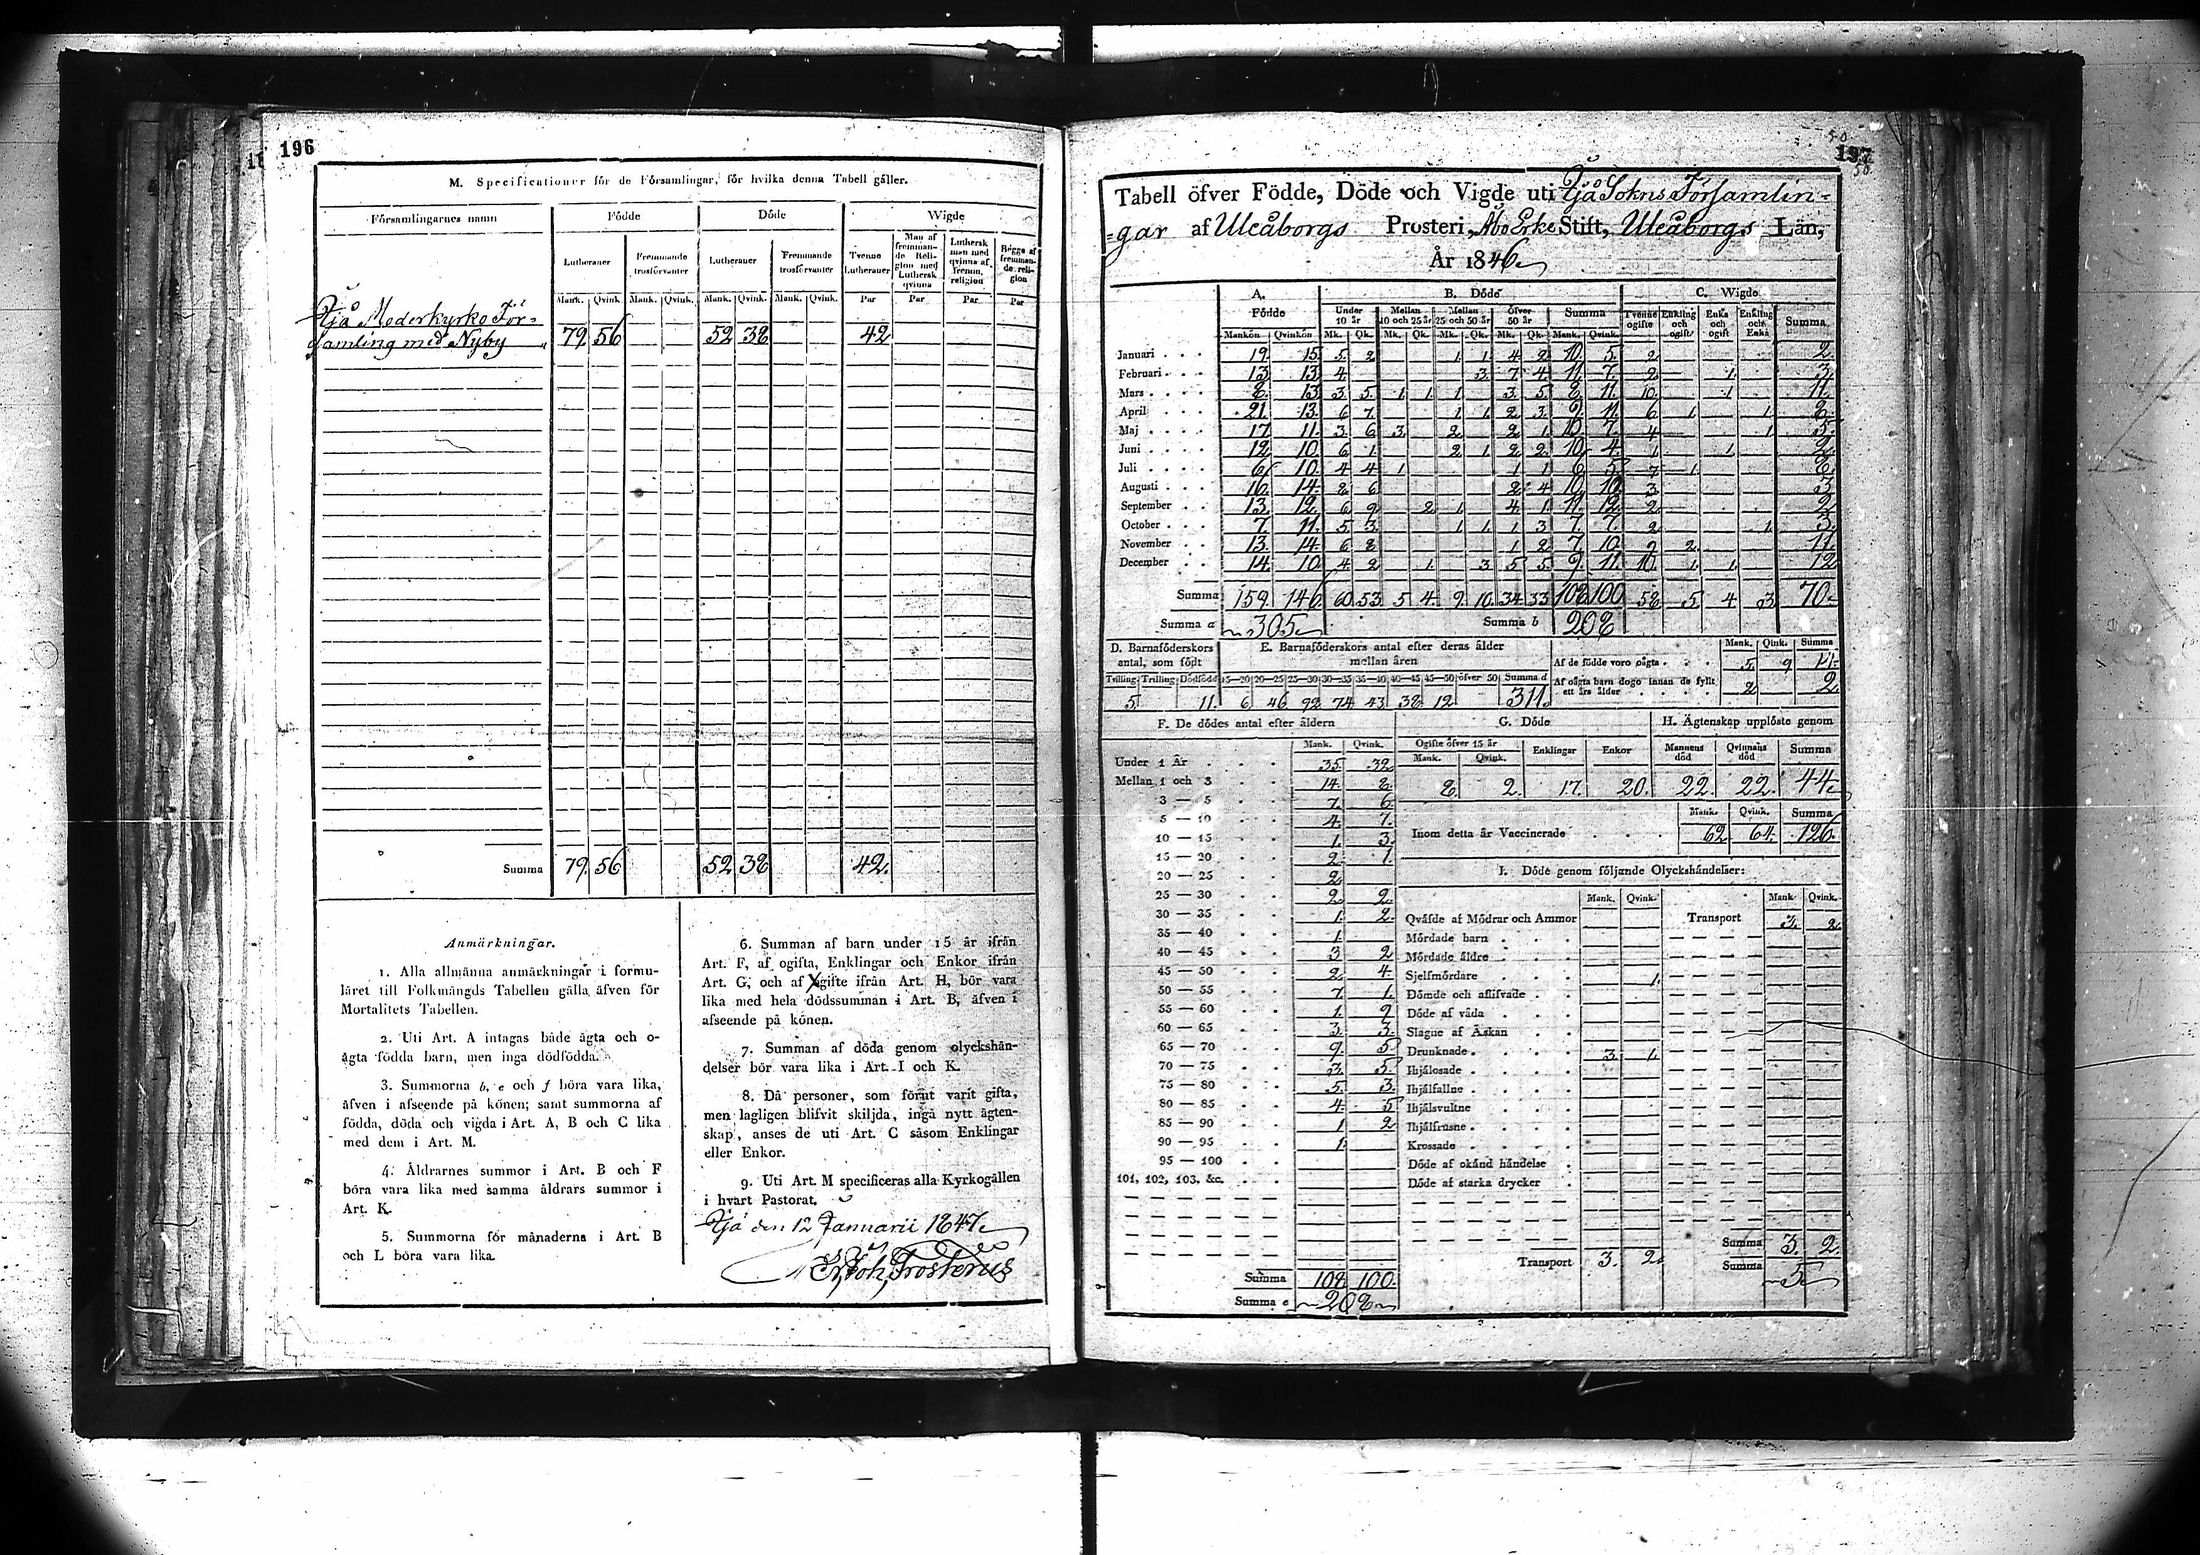 196
M. Specificationer för de Församlingar, för hvilka denna Tabell gäller.
Församlingarnes namn Födde Döde Wigde
Lutheraner Fremmande trosförvanter Lutheraner Fremmande trosförvanter Tvenne Lutheraner Man af fremmande Religion med Luthersk qvinna Luthersk man med qvinna af fremm. religion Bägge af fremmande religion
Mank. Qvink. Mank. Qvink. Mank. Qvink. Mank. Qvink. Par Par Par Par
Ijå Moderkyrko För-
samling med Nyby 79 56 52 38 42
Summa 79. 56 52 38 42.
Anmärkningar.
1. Alla allmänna anmärkningar i formu-
läret till Folkmängds Tabellen gälla äfven för
Mortalitets Tabellen.
2. Uti Art. A intagas både ägta och o-
ägta födda barn, men inga dödfödda.
3. Summorna b, e och f böra vara lika,
äfven i afseende på könen; samt summorna af
födda, döda och vigda i Art. A, B och C lika
med dem i Art. M.
4. Åldrarnes summor i Art. B och F
böra vara lika med samma åldrars summor i
Art. K.
5. Summorna för månaderna i Art. B
och L böra vara lika.
6. Summan af barn under 15 år ifrån
Art. F, af ogifta, Enklingar och Enkor ifrån
Art. G, och af gifte ifrån Art. H, bör vara
lika med hela dödssumman i Art. B, äfven i
afseende på könen.
7. Summan af döda genom olyckshän-
delser bör vara lika i Art. I och K.
8. Då personer, som förut varit gifta,
men lagligen blifvit skiljda, ingå nytt ägten-
skap, anses de uti Art. C såsom Enklingar
eller Enkor.
9. Uti Art. M specificeras alla Kyrkogällen
i hvart Pastorat.
Ijå den 12 Januarii 1847.
Joh, Frosterus
197
Tabell öfver Födde, Döde och Vigde uti Ijå Sokns Församlin-
gar af Uleåborgs Prosteri, Åbo Erke Stift, Uleåborgs Län,
År 1846
A. B. Döde C. Wigde
Födde Under 10 år Mellan 10 och 25 år Mellan 25 och 50 år Öfver 50 år Summa Tvenne ogifte Enkling och ogift Enka och ogift Enkling och Enka Summa
Mankön Qvinkön Mk. Qk. Mk. Qk. Mk. Qk. Mk. Qk. Mank. Qvink.
Januari 19 15 5 2 1 1 4 2 10 5 2 2
Februari 13 13 4 3 7 4 11 7 2 1 3
Mars 8 13 3 5 1 1 1 3 5 8 11 10 1 11
April 21 13 6 7 1 1 2 3 9 11 6 1 1 8
Maj 17 11 3 6 3 2 2 1 10 7 4 1 5
Juni 12 10 6 1 2 1 2 2 10 4 1 1 2
Juli 6 10 4 4 1 1 1 6 5 7 1 8
Augusti 16 14 8 6 2 4 10 10 3 3
September 13 12 6 9 2 1 4 1 11 12 2 2
October 7 11 5 3 1 1 1 3 7 7 2 1 3
November 13 14 6 8 1 2 7 10 9 2 11
December 14 10 4 2 1 3 5 5 9 11 10 1 1 12
Summa 159 146 60 53 5 4 9 10 34 33 108 100 58 5 4 3 70
Summa a 305 Summa b 208
D. Barnaföderskors antal, som födt E. Barnaföderskors antal efter deras ålder mellan åren Mank. Qink. Summa
Af de födde voro oägta 5 9 14
Tvilling Trilling Dödfödd 15—20 20—25 25—30 30—35 35—40 40—45 45—50 öfver 50 Summa d
Af oägta barn dogo innan de fyllt ett års ålder 2 2
5 11 6 46 92 74 43 38 12 311
F. De dödes antal efter åldern
Mank. Qvink.
Under 1 År 35 32
Mellan 1 och 3 14 8
3 — 5 7 6
5 — 10 4 7
10 — 15 1 3
15 — 20 2 1
20 — 25 2
25 — 30 2 2
30 — 35 1 2
35 — 40 1
40 — 45 3 2
45 — 50 2 4
50 — 55 7 1
55 — 60 1 9
60 — 65 3 3
65 — 70 9 5
70 — 75 3 5
75 — 80 5 3
80 — 85 4 5
85 — 90 1 2
90 — 95 1
95 — 100
101, 102, 103, &c.
Summa 108 100
Summa e 208
G. Döde
Ogifte öfver 15 år Enklingar Enkor
Mank. Qvink.
8 2 17 20
H. Ägtenskap upplöste genom
Mannens död Qvinnans död Summa
22 22 44
Mank. Qvink. Summa
Inom detta år Vaccinerade 62 64 126
I. Döde genom följande Olyckshändelser:
Mank. Qvink. Mank. Qvink.
Qväfde af Mödrar och Ammor Transport 3 2
Mördade barn
Mördade äldre
Sjelfmördare 1
Dömde och aflifvade
Döde af våda
Slagne af Åskan
Drunknade 3 1
Ihjälosade
Ihjälfallne
Ihjälsvultne
Ihjälfrusne
Krossade
Döde af okänd händelse
Döde af starka drycker
Summa 3 2
Transport 3 2 Summa 5